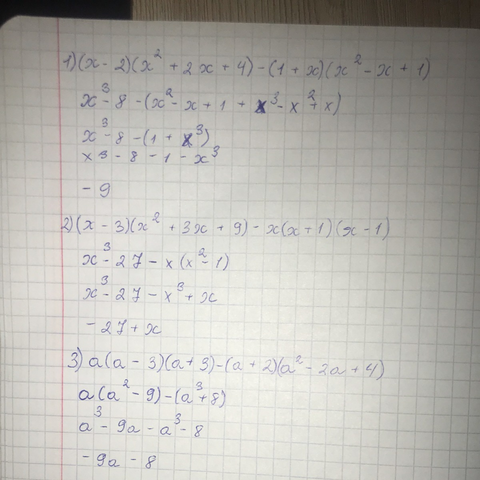 1) (x - 2)(x² + 2x + 4) - (1 + x)(x² - x + 1)
x³ - 8 - (x² - x + 1 + x³ - x² + x)
x³ - 8 - (1 + x³)
x3 - 8 - 1 - x³
- 9
2) (x - 3)(x² + 3x + 9) - x(x + 1)(x - 1)
x³ - 27 - x(x² - 1)
x³ - 27 - x³ + x
- 27 + x
3) a(a - 3)(a + 3) - (a + 2)(a² - 2a + 4)
a(a² - 9) - (a³ + 8)
a³ - 9a - a³ - 8
- 9a - 8